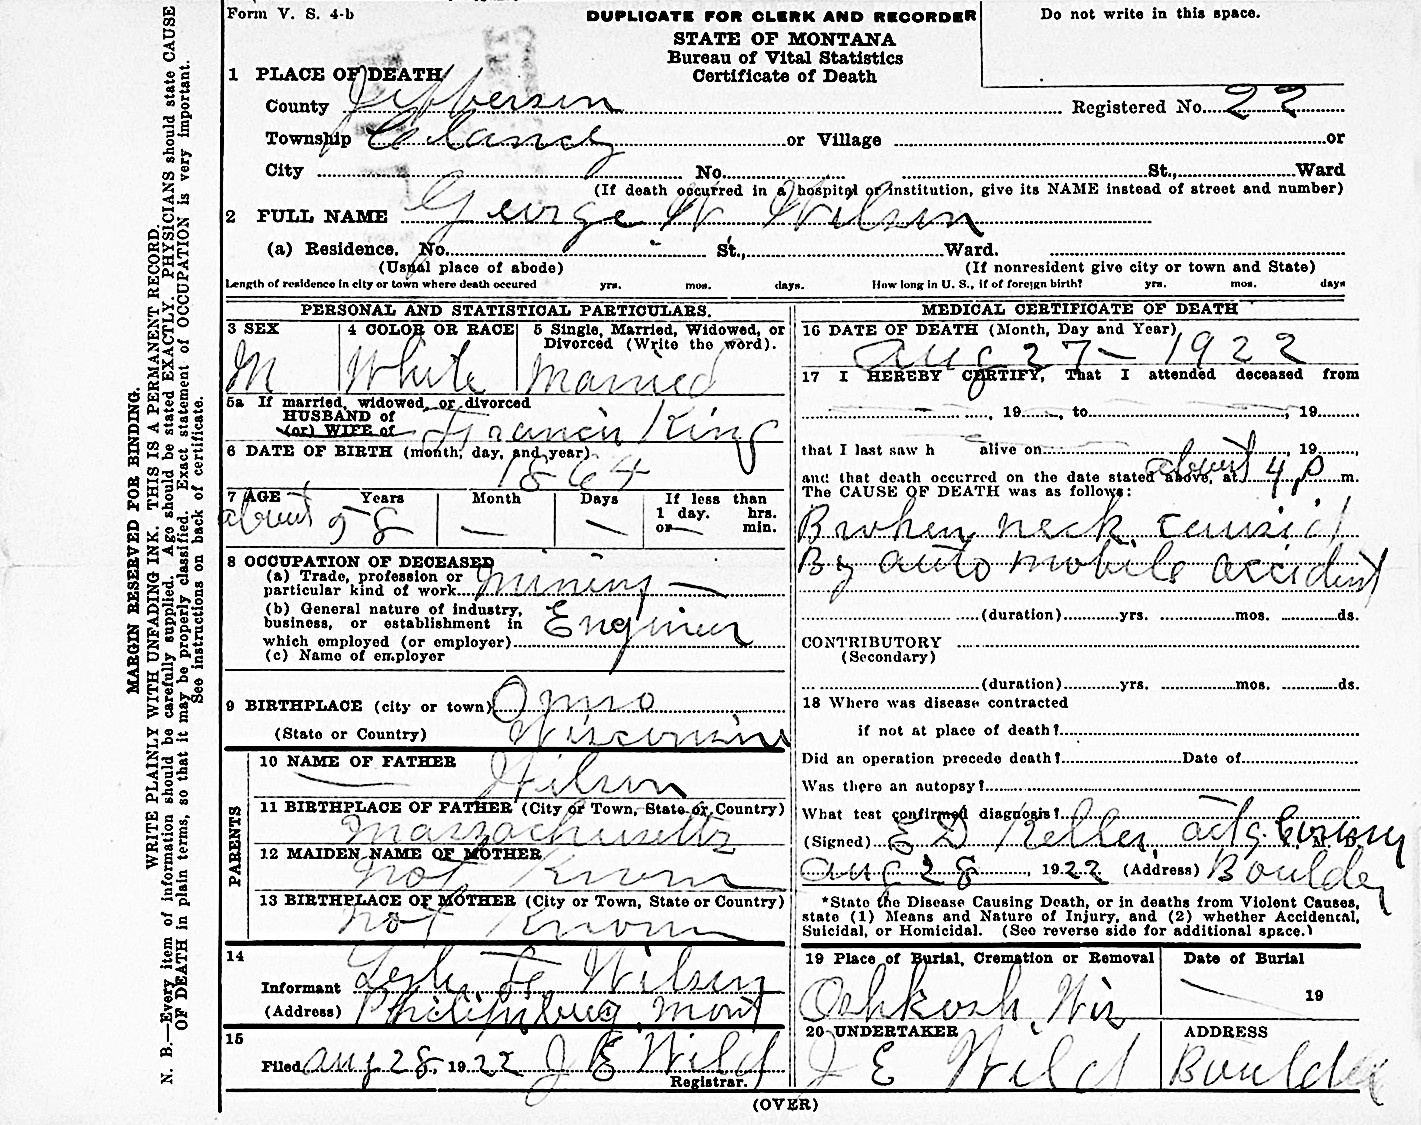 Form V. S. 4-b
DUPLICATE FOR CLERK AND RECORDER
Do not write in this space.
STATE OF MONTANA
Bureau of Vital Statistics
Certificate of Death
1 PLACE OF DEATH
County Jefferson Registered No. 22
Township Clancy or Village or
City No. St., Ward
(If death occurred in a hospital or institution, give its NAME instead of street and number)
2 FULL NAME George W Wilson
(a) Residence. No. St., Ward.
(Usual place of abode) (If nonresident give city or town and State)
Length of residence in city or town where death occured yrs. mos. days. How long in U. S., if of foreign birth? yrs. mos. days
PERSONAL AND STATISTICAL PARTICULARS.
3 SEX 4 COLOR OR RACE 5 Single, Married, Widowed, or
Divorced (Write the word).
M White Married
5a If married, widowed, or divorced
HUSBAND of
(or) WIFE of Francis King
6 DATE OF BIRTH (month, day, and year)
1864
7 AGE Years Month Days If less than
1 day. hrs.
or min.
about 58 — —
8 OCCUPATION OF DECEASED
(a) Trade, profession or
particular kind of work Mining —
(b) General nature of industry,
business, or establishment in
which employed (or employer) Engineer
(c) Name of employer
9 BIRTHPLACE (city or town) Omro
(State or Country) Wisconsin
PARENTS
10 NAME OF FATHER
— Wilson
11 BIRTHPLACE OF FATHER (City or Town, State or Country)
Massachusetts
12 MAIDEN NAME OF MOTHER
Not Known
13 BIRTHPLACE OF MOTHER (City or Town, State or Country)
Not Known
14
Informant Wilson
(Address) Philipsburg, Mont
15
Filed Aug 28 1922 J E Wild
Registrar.
MEDICAL CERTIFICATE OF DEATH
16 DATE OF DEATH (Month, Day and Year)
Aug 27 — 1922
17 I HEREBY CERTIFY, That I attended deceased from
, 19 , to , 19
that I last saw h alive on , 19 ,
and that death occurred on the date stated above, at about 4 p m.
The CAUSE OF DEATH was as follows:
Broken neck caused
By auto mobile accident
(duration) yrs. mos. ds.
CONTRIBUTORY
(Secondary)
(duration) yrs. mos. ds.
18 Where was disease contracted
if not at place of death?
Did an operation precede death? Date of
Was there an autopsy?
What test confirmed diagnosis?
(Signed) E D Keller, actg. M. D.
Aug 28, 1922 (Address) Boulder
*State the Disease Causing Death, or in deaths from Violent Causes,
state (1) Means and Nature of Injury, and (2) whether Accidental,
Suicidal, or Homicidal. (See reverse side for additional space.)
19 Place of Burial, Cremation or Removal Date of Burial
Oshkosh, Wis — 19
20 UNDERTAKER ADDRESS
J E Wild Boulder
(OVER)
MARGIN RESERVED FOR BINDING.
WRITE PLAINLY WITH UNFADING INK. THIS IS A PERMANENT RECORD.
N. B.—Every item of information should be carefully supplied. Age should be stated EXACTLY. PHYSICIANS should state CAUSE
OF DEATH in plain terms, so that it may be properly classified. Exact statement of OCCUPATION is very important.
See instructions on back of certificate.